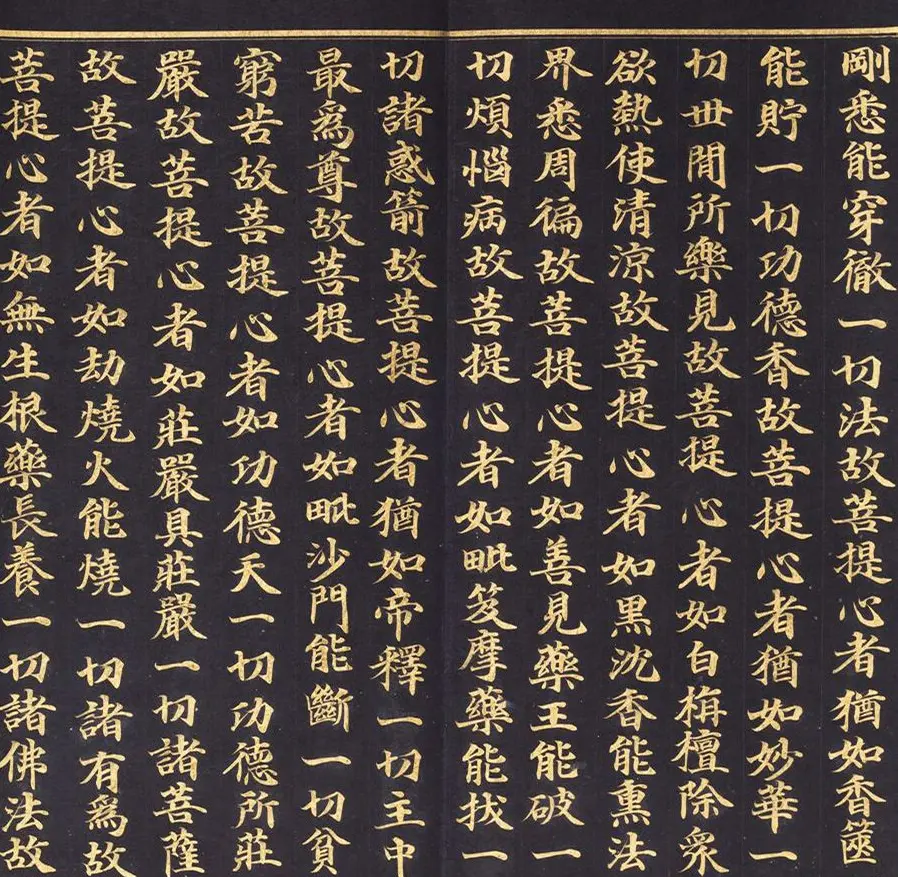 剛悉能穿徹一切法故菩提心者猶如香篋
能貯一切功德香故菩提心者猶如妙華一
切世閒所樂見故菩提心者如白栴檀除眾
欲熱使清涼故菩提心者如黑沈香能熏法
界悉周徧故菩提心者如善見藥王能破一
切煩惱病故菩提心者如毗笈摩藥能拔一
切諸惑箭故菩提心者猶如帝釋一切主中
最爲尊故菩提心者如毗沙門能斷一切貧
窮苦故菩提心者如功德天一切功德所莊
嚴故菩提心者如莊嚴具莊嚴一切諸菩薩
故菩提心者如劫燒火能燒一切諸有爲故
菩提心者如無生根藥長養一切諸佛法故